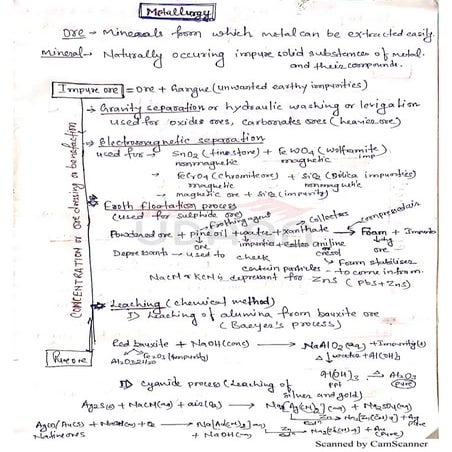 Metallurgy
Ore → Minerals from which metal can be extracted easily.
Mineral → Naturally occuring impure solid substances of metal
and their compounds.
Impure ore = ore + Gangue (unwanted earthy impurities)
CONCENTRATION or ore dressing or benefaction
→ Gravity separation or hydraulic washing or levigation
used for oxides ores, carbonates ores (heavier ore)
→ Electromagnetic separation
used for → SnO2 (tinestone) + FeWO4 (wolfamite)
nonmagnetic magnetic imp
FeCrO4 (chromiteore) + SiO2 (Silica impurities)
magnetic nonmagnetic
→ magnetic ore + SiO2 (impurity)
→ Froth floatation process
(used for sulphide ore) Frothing agent Collectors compressed air
Powdered ore + pine oil + water + xanthate → Foam + Impurity
impurities aniline or cresol
Foam stabiliser
Depressants → used to check
certain particles → to come in fram.
NaCN & KCN is depressant for ZnS (PbS + ZnS)
→ Leaching (chemical method)
I) Leaching of alumina from bauxite ore
(Baeyer's process)
Red bauxite + NaOH (conc) → NaAlO2 (aq) + Impurity(s)
Al2O3·2H2O Fe2O3 (Impurity) water + Al(OH)3
Al(OH)3 Δ→ Al2O3
ppt Pure
Pure ore
II) cyanide process (Leaching of
silver and gold)
Ag2S(s) + NaCN(aq) + air(O2) → Na[Ag(CN)2](aq) + Na2SO4(aq)
Zn → Na2[Zn(CN)4] + Ag
Pure
Native ores
+ NaOH(aq) Zn → Na2[Zn(CN)4] + Au
(Pure)
Scanned by CamScanner